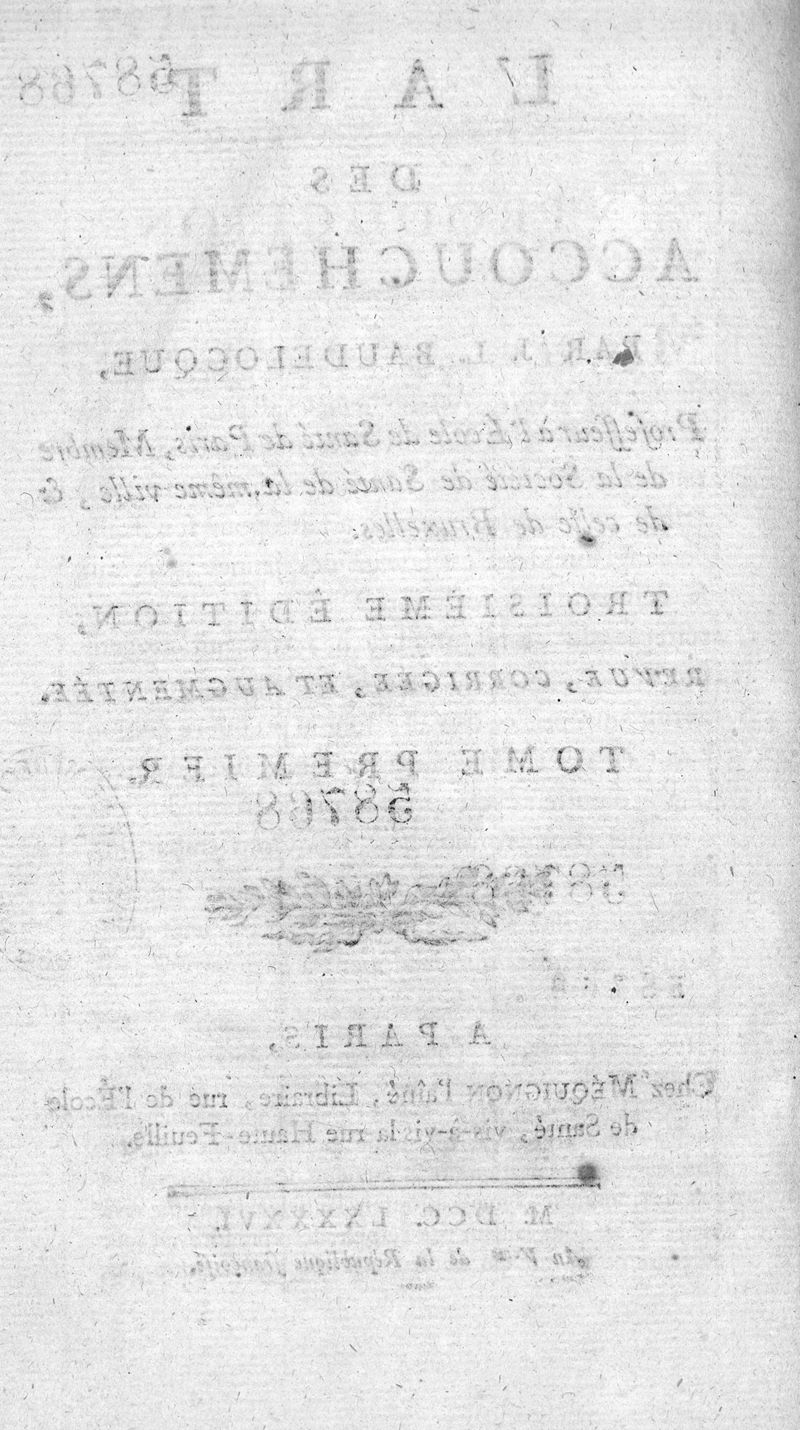 L'ART 58768
DES
ACCOUCHEMENS,
PAR J. L. BAUDELOCQUE,
Professeur à l'École de Santé de Paris, Membre
de la Société de Santé de la même ville, &
de celle de Bruxelles.
TROISIÈME ÉDITION,
REVUE, CORRIGÉE, ET AUGMENTÉE.
TOME PREMIER.
58768
58768
A PARIS,
Chez MÉQUIGNON l'aîné, Libraire, rue de l'École
de Santé, vis-à-vis la rue Haute-Feuille.
M. DCC. LXXXXVI.
An V.me de la République françoise.